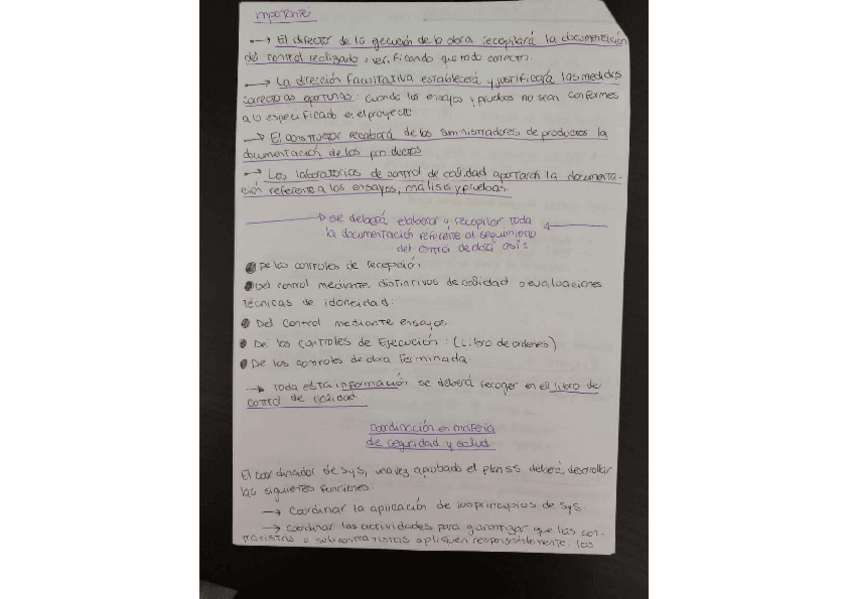 importante:
→ El director de la ejecución de la obra recopilará la documentación
de control realizado, verificando que todo correcto.
→ La dirección facultativa establecerá y justificará las medidas
correctoras oportunas: cuando los ensayos y pruebas no sean conformes
a lo especificado en el proyecto
→ El constructor recabará de los suministradores de productos la
documentación de los productos
→ Los laboratorios de control de calidad aportarán la documenta-
ción referente a los ensayos, análisis y pruebas.
→ se deberá elaborar y recopilar toda
la documentación referente al seguimiento
del control de
● De los controles de recepción
● Del control mediante distintivos de calidad o evaluaciones
técnicas de idoneidad:
● Del control mediante ensayos
● De los controles de Ejecución: (Libro de ordenes)
● De los controles de obra Terminada
→ toda esta información se deberá recoger en el libro de
control de calidad
coordinación en materia
de seguridad y salud.
El coordinador de sys, una vez aprobado el plan ss deberá desarrollar
las siguientes funciones:
→ coordinar la aplicación de los principios de sys.
→ coordinar las actividades para garantizar que las con-
tratistas o subcontratistas apliquen responsablemente, los